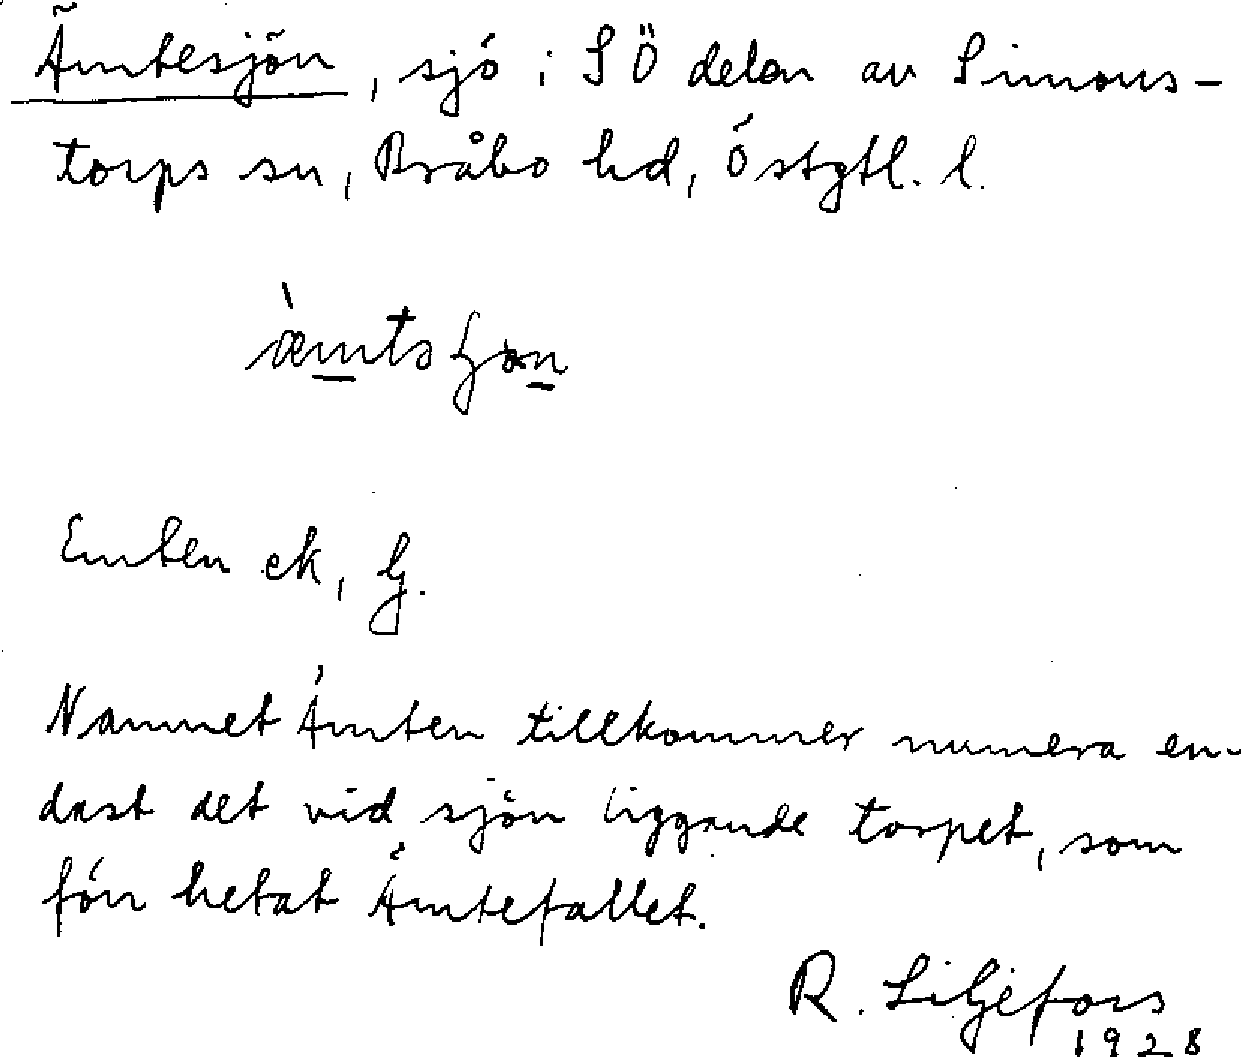 Ämtesjön, sjö i SÖ delen av Simons-
torps sn, Bråbo hd, Östgtl. l.
Emten ek, G.
Namnet Ämten tillkommer numera en-
dast det vid sjön liggande torpet, som
förr hetat Ämtefallet.
R. Liljefors
1928